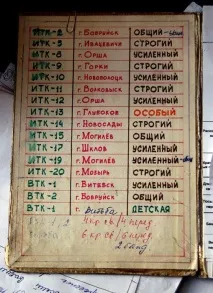 ИТК-2 г. Бобруйск ОБЩИЙ
ИТК-5 г. Ивацевичи СТРОГИЙ
ИТК-8 г. Орша УСИЛЕННЫЙ
ИТК-9 г. Горки СТРОГИЙ
ИТК-10 г. Новополоцк УСИЛЕННЫЙ
ИТК-11 г. Волковыск СТРОГИЙ
ИТК-12 г. Орша УСИЛЕННЫЙ
ИТК-13 г. Глубокое ОСОБЫЙ
ИТК-14 г. Новосады СТРОГИЙ
ИТК-15 г. Могилёв ОБЩИЙ
ИТК-17 г. Шклов УСИЛЕННЫЙ
ИТК-19 г. Могилёв УСИЛЕННЫЙ
ИТК-20 г. Мозырь СТРОГИЙ
ВТК-1 г. Витебск УСИЛЕННЫЙ
ВТК-2 г. Бобруйск ОБЩИЙ
ВТК-1 г. Витьба ДЕТСКАЯ